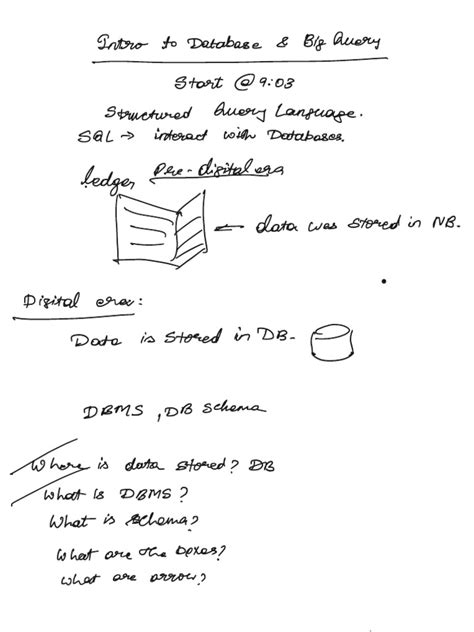 Intro to Database & Big Query
Start @ 9:03
Structured Query Language.
SQL → interact with Databases.
Pre-digital era
ledger
← data was stored in NB.
Digital era:
Data is stored in DB.
DBMS, DB Schema
Where is data stored? DB
What is DBMS?
What is schema?
What are the boxes?
What are arrow?